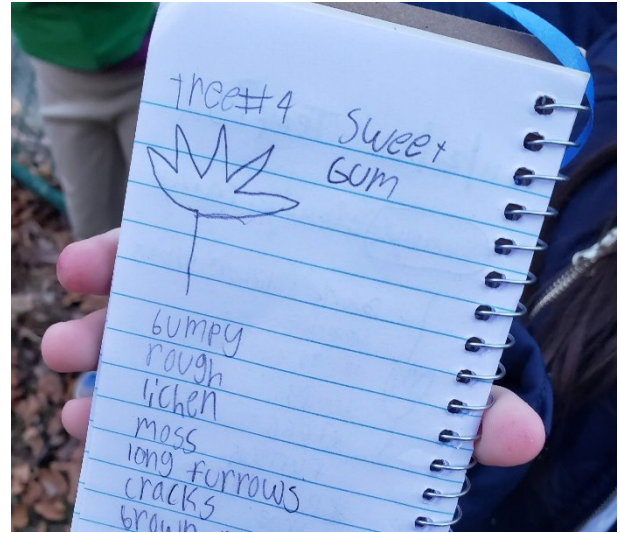 tree#4
Sweet
Gum
bumpy
rough
lichen
moss
long furrows
cracks
brown